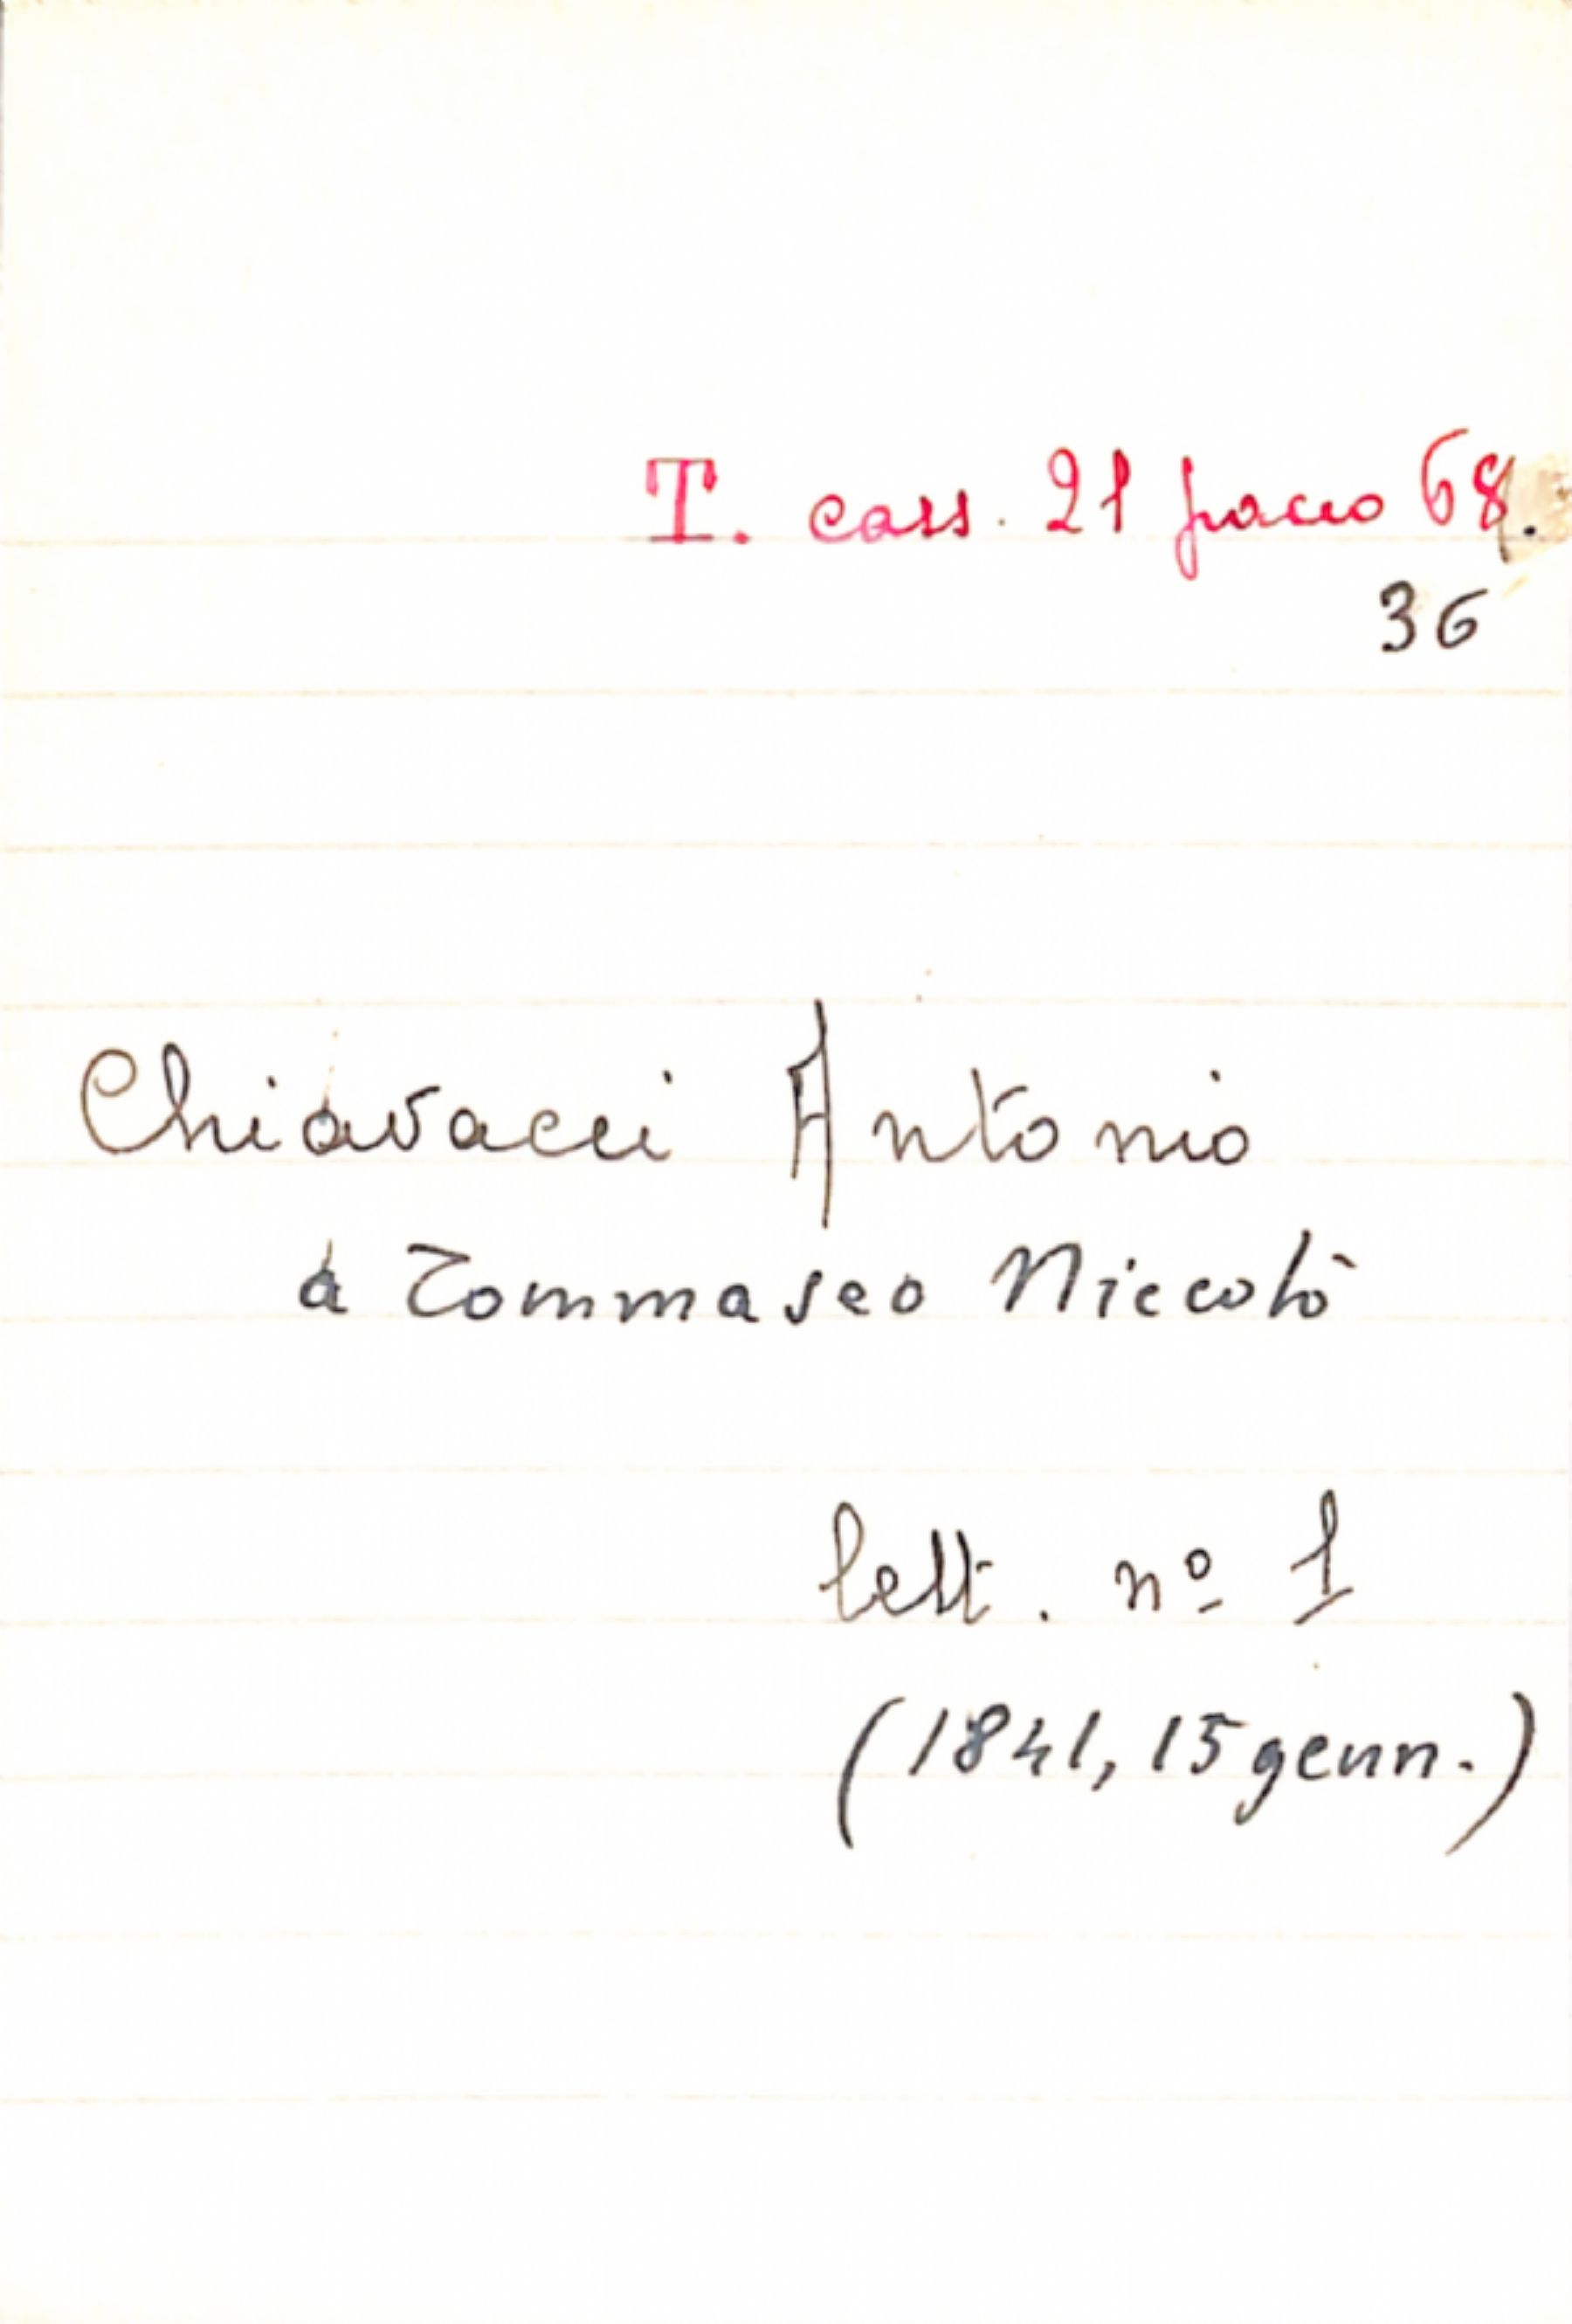 T. cass. 21 pacco 68.
36
Chiavacci Antonio
a Tommaseo Niccolò
lett. nº 1
(1841, 15 genn.)